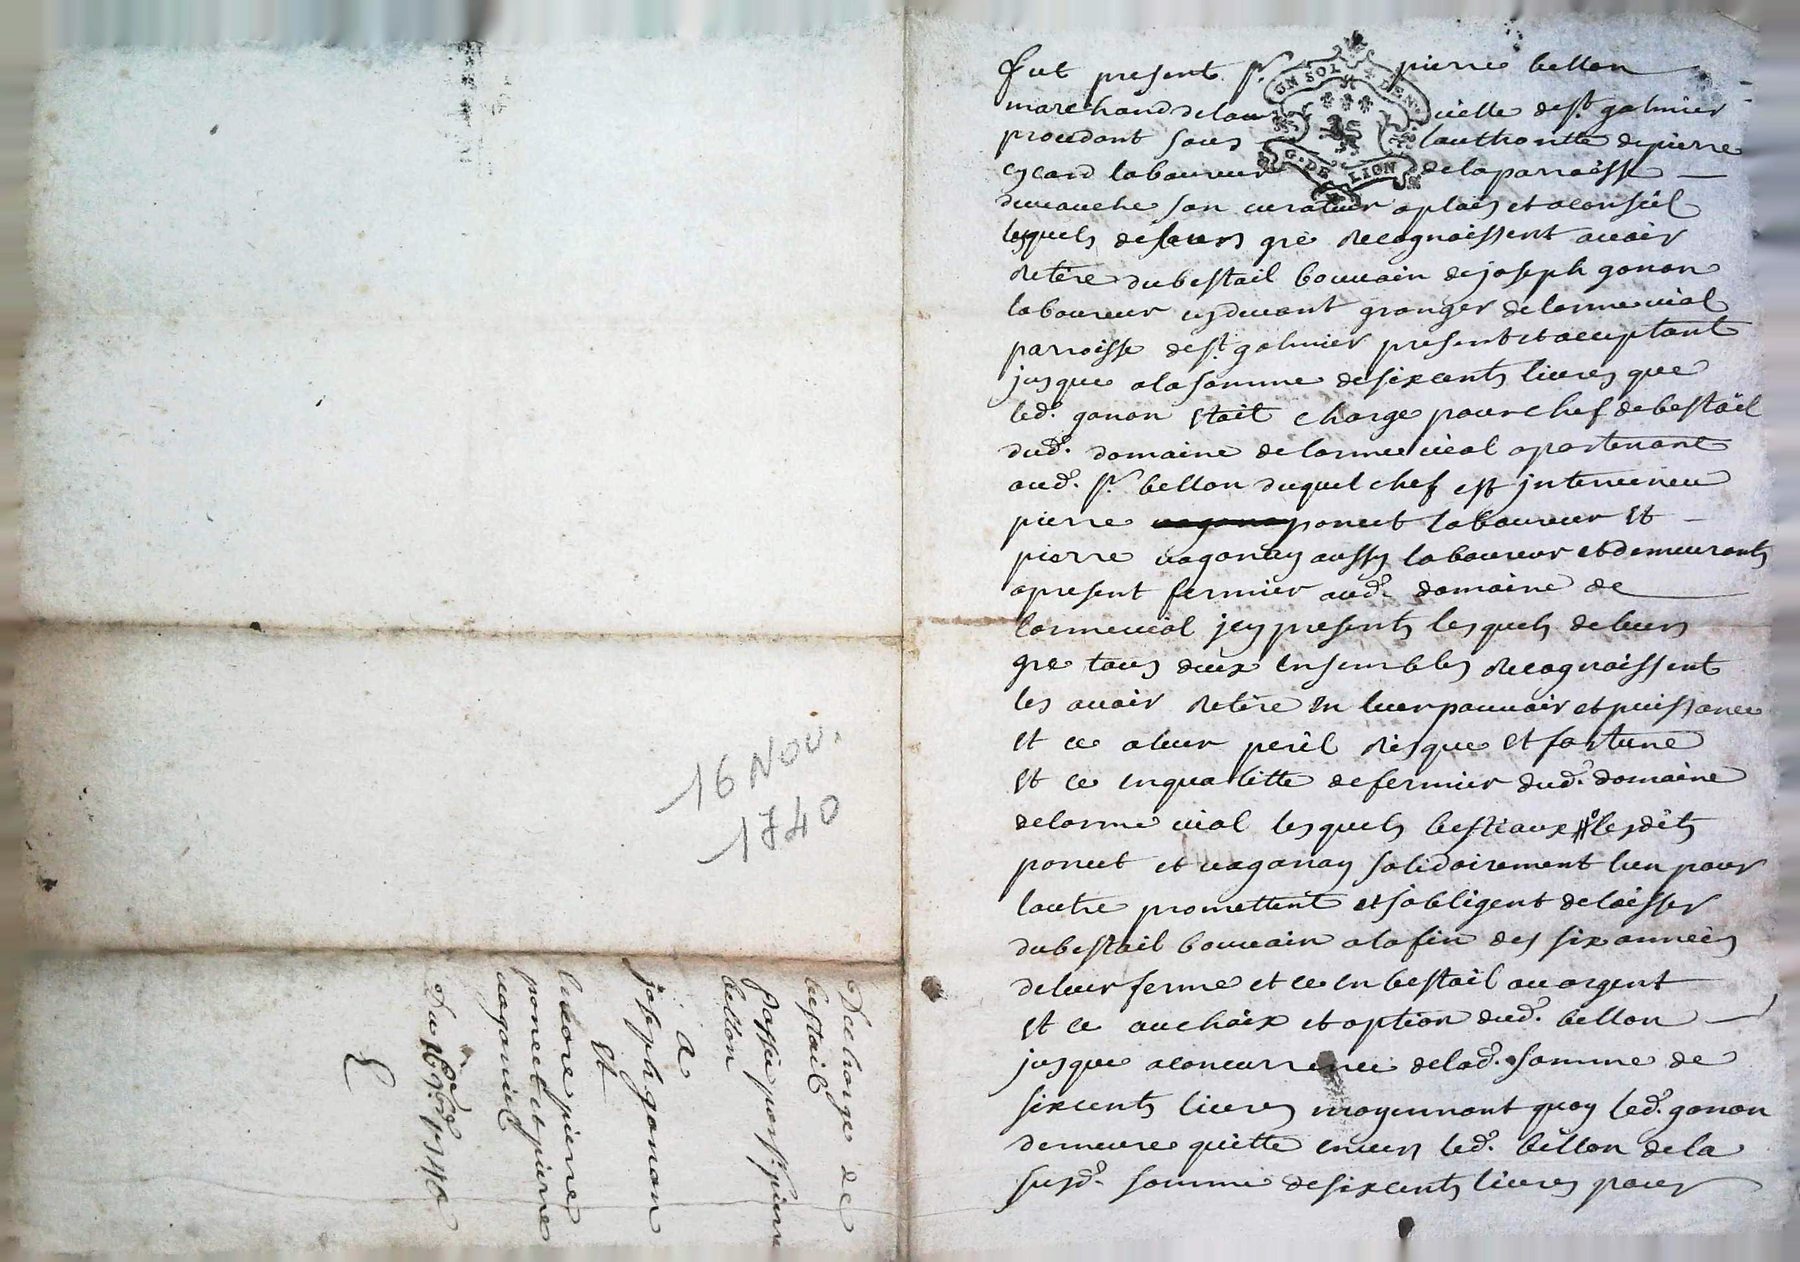 16 Nov.
1740
Decharge de
bestail
Passée par sr. pierre
bellon
A
joseph gonon
Et
encore pierre
poncet et pierre
vaganiel
Du 16e 9bre 1740
fut present sr. pierre bellon
marchand de la ville de st. galmier
procedant sous lauthoritté de pierre
eycard laboureur de la parroisse
daveauche son curateur a plais et a conseil
lesquels de leurs gré recognoissent avoir
retiré du bestail bouvain de joseph gonon
laboureur cy devant granger de lormevial
parroisse de st. galmier present et acceptant
jusque a la somme de six cents livres que
led. gonon etait charge pour chef de bestail
dud. domaine de lorme vial apartenant
aud. sr. bellon duquel chef est jntervenu
pierre vaganay poncet laboureur et
pierre vaganay aussy laboureur et demeurants
a present fermier aud. domaine de
lormevial jcy presents lesquels de leurs
gre tous deux ensembles recognoissent
les avoir retiré en leur pouvoir et puissance
et ce a leur peril risque et fortune
et ce en qualitté de fermier dud. domaine
de lorme vial lesquels bestiaux # lesdits
poncet et vaganay solidairement lun pour
lautre promettent et sobligent de laisser
du bestail bouvain a la fin des six années
de leur ferme et ce en bestail ou argent
et ce au choix et option dud. bellon
jusque a concurrence de lad. somme de
six cents livres moyennant quoy led. gonon
demeure quitte envers led. bellon de la
susd. somme de six cents livres pour
UN SOL 4 DEN.
G. DE LION